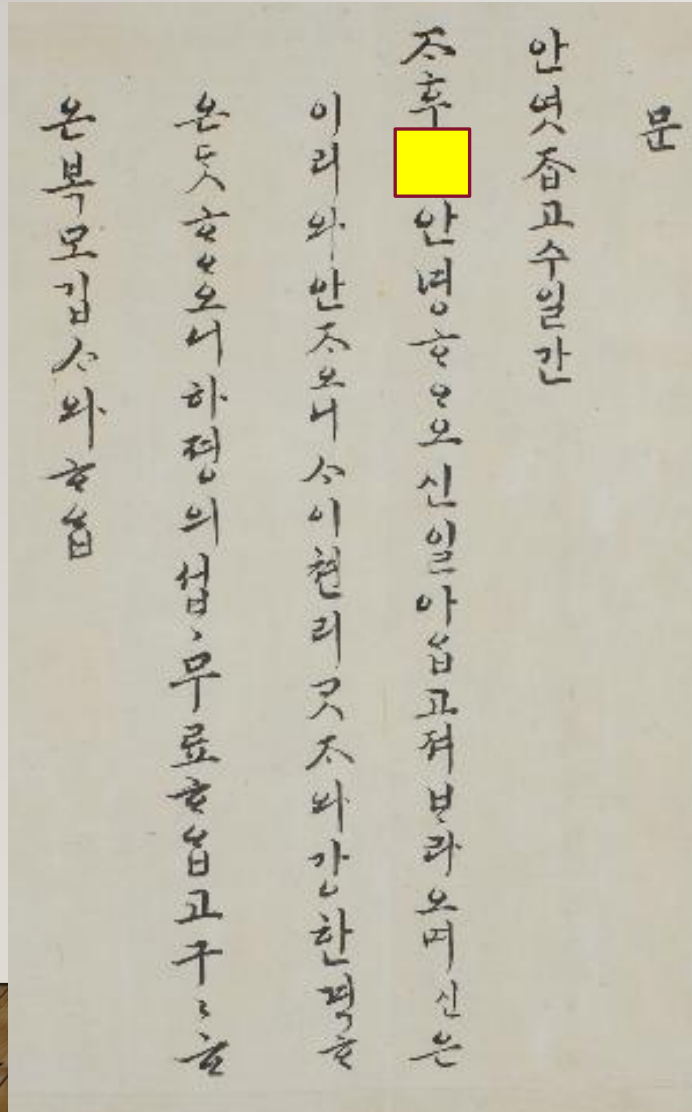 문
안엿ᄌᆞᆸ고수일간
ᄌᆞ후안녕ᄒᆞᄋᆞ오신일아ᄋᆞᆸ고져ᄇᆞ라오며신은
이리와안ᄌᆞ오니ᄉᆞ이쳔리ᄀᆞᆺᄌᆞ와강한격ᄒᆞ
온ᄃᆞᆺᄒᆞᄋᆞ오니하졍의섭〻무료ᄒᆞᄋᆞᆸ고구〻ᄒᆞ
온복모깁ᄉᆞ와ᄒᆞᄋᆞᆸ